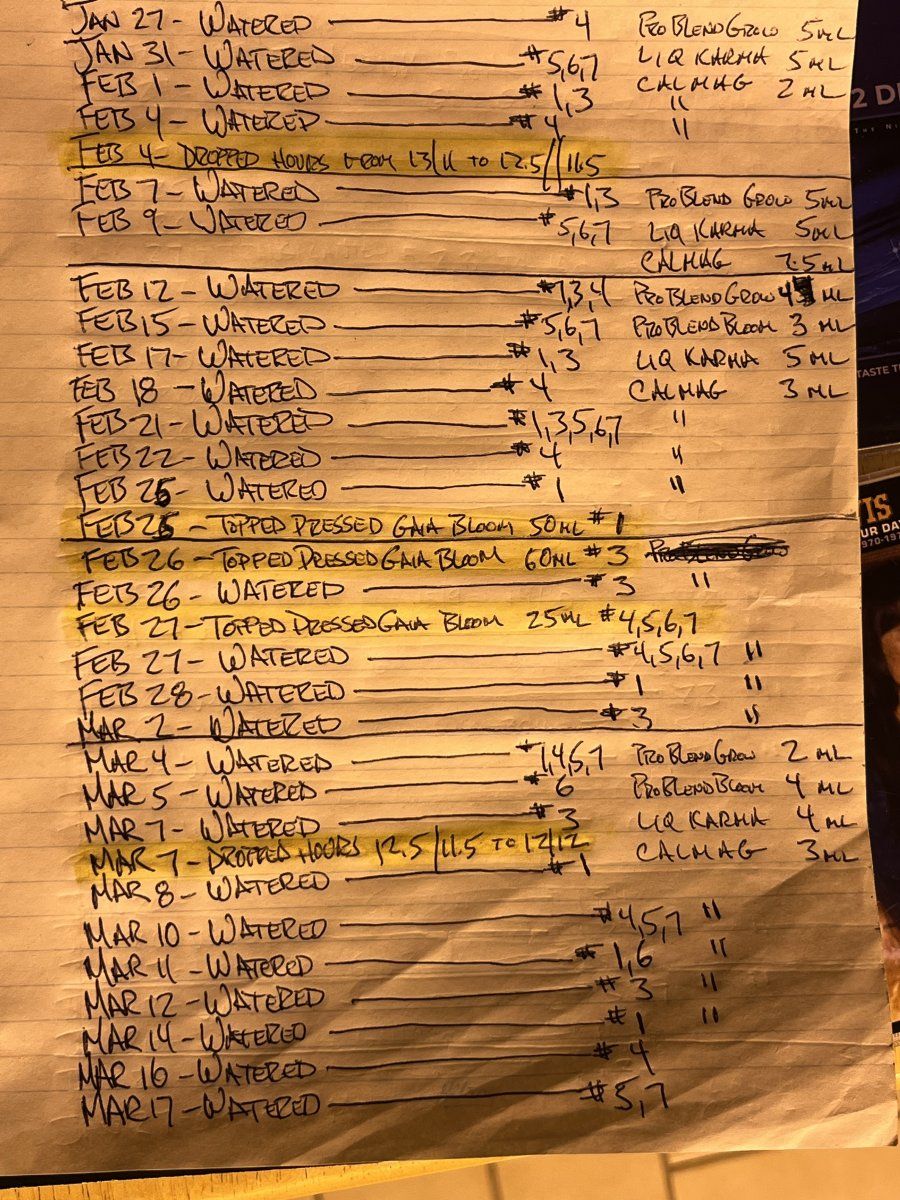 JAN 27 - WATERED # 4 PRO BLEND GROW 5 ML
JAN 31 - WATERED # 5,6,7 LIQ KARMA 5 ML
FEB 1 - WATERED # 1,3 CALMAG 2 ML
FEB 4 - WATERED # 4 "
FEB 4 - DROPPED HOURS FROM 13/11 TO 12.5//11.5
FEB 7 - WATERED # 1,3 PRO BLEND GROW 5 ML
FEB 9 - WATERED # 5,6,7 LIQ KARMA 5 ML
CALMAG 2.5 ML
FEB 12 - WATERED # 1,3,4 PRO BLEND GROW 4 ML
FEB 15 - WATERED # 5,6,7 PRO BLEND BLOOM 3 ML
FEB 17 - WATERED # 1,3 LIQ KARMA 5 ML
FEB 18 - WATERED # 4 CALMAG 3 ML
FEB 21 - WATERED # 1,3,5,6,7 "
FEB 22 - WATERED # 4 "
FEB 25 - WATERED # 1 "
FEB 25 - TOPPED PRESSED GAIA BLOOM 50ML # 1
FEB 26 - TOPPED PRESSED GAIA BLOOM 60ML # 3
FEB 26 - WATERED # 3 "
FEB 27 - TOPPED PRESSED GAIA BLOOM 25ML # 4,5,6,7
FEB 27 - WATERED # 4,5,6,7 "
FEB 28 - WATERED # 1 "
MAR 2 - WATERED # 3 "
MAR 4 - WATERED # 1,4,5,7 PRO BLEND GROW 2 ML
MAR 5 - WATERED # 6 PRO BLEND BLOOM 4 ML
MAR 7 - WATERED # 3 LIQ KARMA 4 ML
MAR 7 - DROPPED HOURS 12.5/11.5 TO 12/12 CALMAG 3 ML
MAR 8 - WATERED # 1
MAR 10 - WATERED # 4,5,7 "
MAR 11 - WATERED # 1,6 "
MAR 12 - WATERED # 3 "
MAR 14 - WATERED # 1 "
MAR 16 - WATERED # 4
MAR 17 - WATERED # 5,7
2 D
TASTE T
IS
UR DA
970-197